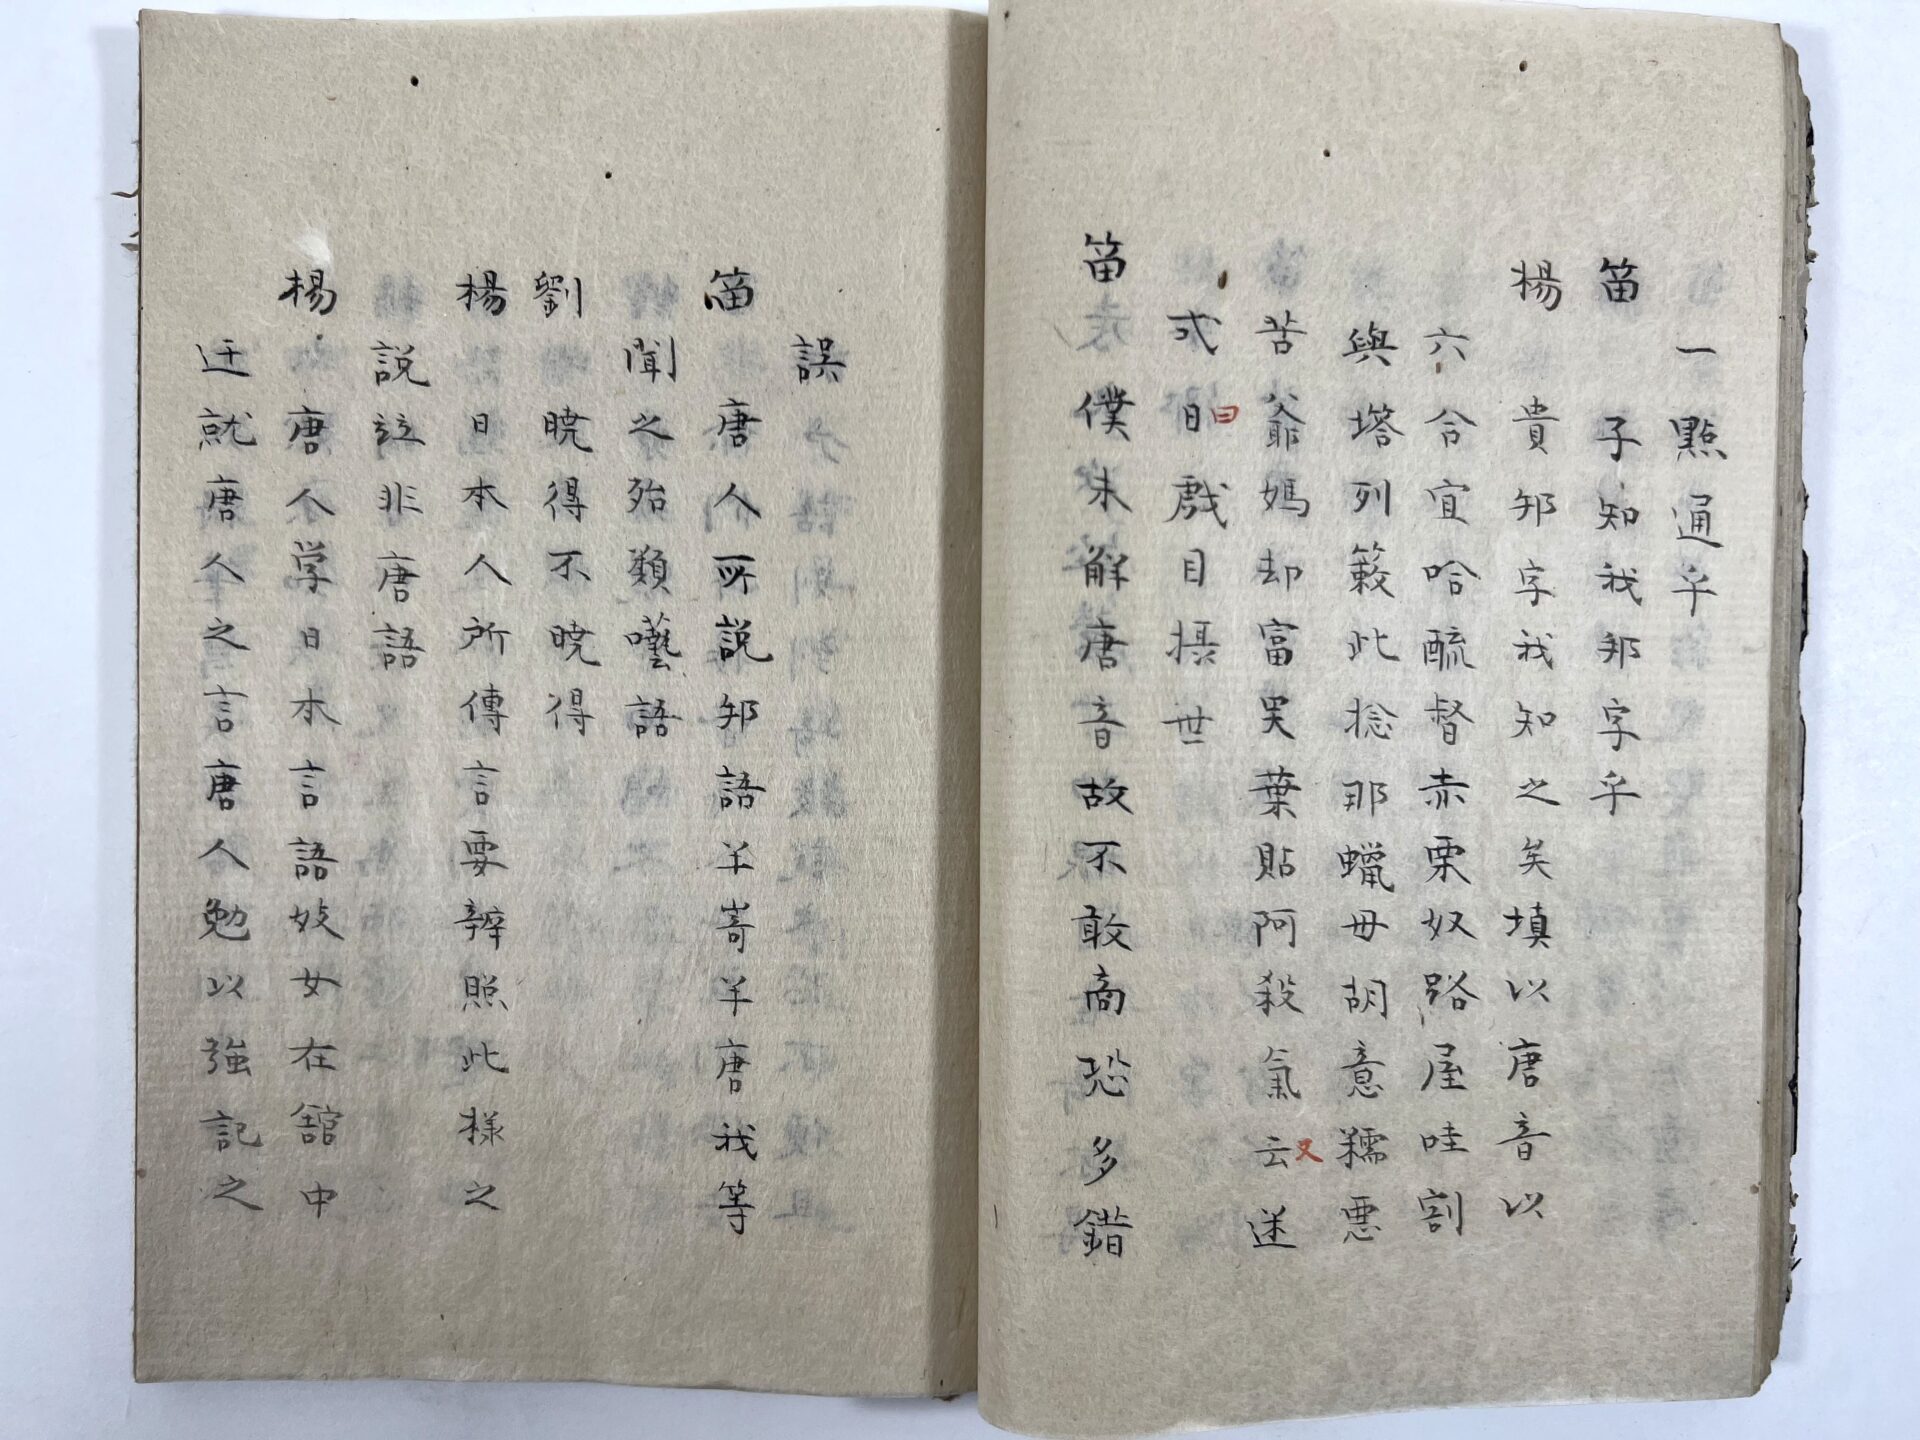 一點通乎
笛　子知我邦字乎
楊　貴邦字我知之矣填以唐音以
六合宜哈酼督赤栗奴路屋哇割
與塔列簌此捻那蠟毋胡意糯悪
苦爺媽却富哭葉貼阿殺氣云又迷
式日曰戲目攝世
笛　僕未解唐音故不敢商恐多錯
誤
笛　唐人所説邦語半嵜半唐我等
聞之殆類囈語
劉　暁得不暁得
楊　日本人所傳言要辨照此様之
説竝非唐語
楊　唐人学日本言語妓女在舘中
迁就唐人之言唐人勉以強記之